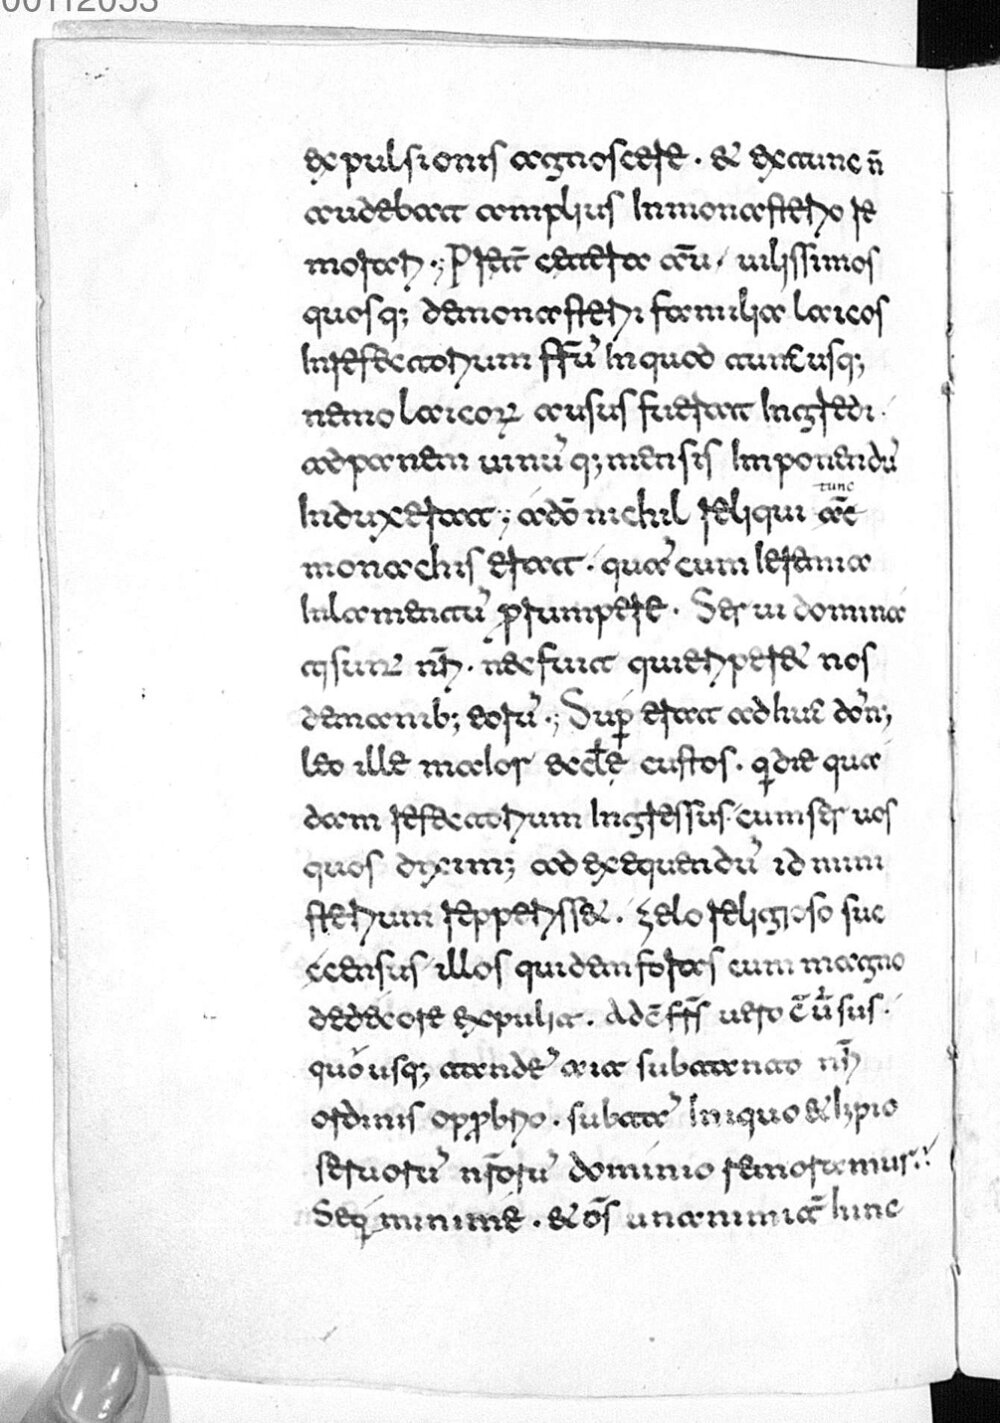 00112053
expulsionis agnoscere · & extunc ñ
audebat amplius In monasterio re
morari ·; P̃terea cetera aũ, uilissimos
quosq; de monasterii familia laicos
In refectorium fr̃ũ In quod tunc usq;
nemo laicoꝝ ausus fuerat Ingredi ·
ad panem uinũ q; mensis Imponendũ
Induxerat ; adõ nichil reliqui tunc ac̃
monachis erat · quã cum leremia
In lamentatũ ꝓrumpere · Serui domina
ti sunt nr̃i · nec fuit qui eriperet nos
de manib; eorũ ·; Supꝑ erat adhuc dõn;
leo ille maior eccl̃ę custos · q die qua
dam refectorium Ingressus cum seruos
quos dixim; ad exequendũ id mini
sterium repperisset · zelo religioso suc
census illos quidem foras cum magno
dedecore expulit · Ad c̃fr̃s uero c̃ũsus ·
quo usq; attendẽ aia sub aeterno nr̃i
ordinis opprobrio · sub tã Iniquo & Inpio
seruorũ nr̃orũ dominio remoramur ·:
Seqꝫ minime · & om̃s unanimit̃ hunc